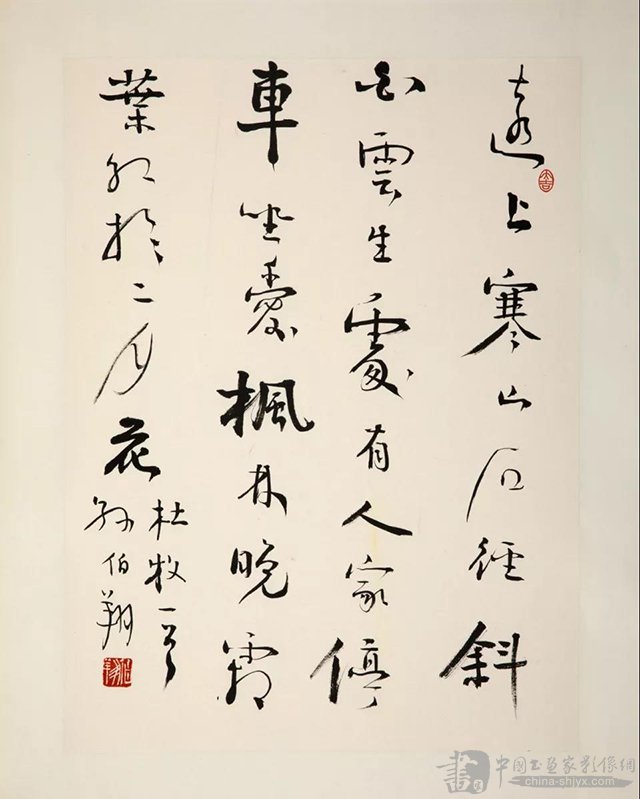 遠上寒山石徑斜
白雲生處有人家停
車坐愛楓林晚霜
葉紅於二月花
杜牧一首
孫伯翔
中國书画家影像網
china-shjyx.com